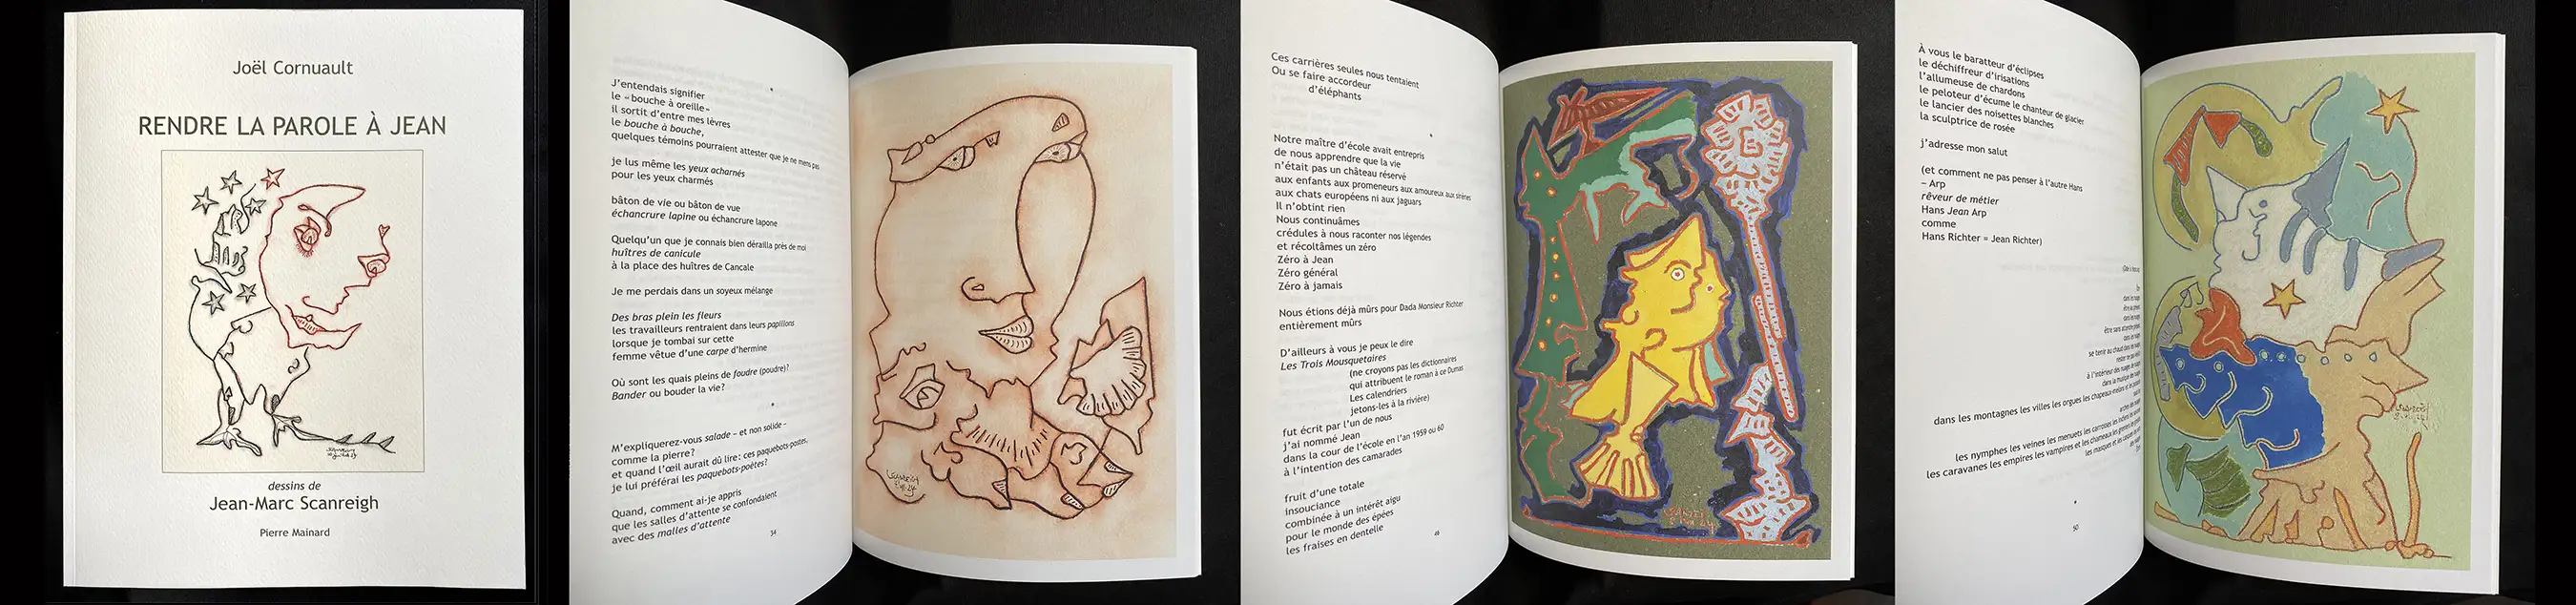 Joël Cornuault
RENDRE LA PAROLE À JEAN
dessins de
Jean-Marc Scanreigh
Pierre Mainard
J'entendais signifier
le « bouche à oreille »
il sortit d'entre mes lèvres
le bouche à bouche,
quelques témoins pourraient attester que je ne mens pas
je lus même les yeux acharnés
pour les yeux charmés
bâton de vie ou bâton de vue
échancrure lapine ou échancrure lapone
Quelqu'un que je connais bien dérailla près de moi
huîtres de canicule
à la place des huîtres de Cancale
Je me perdais dans un soyeux mélange
Des bras plein les fleurs
les travailleurs rentraient dans leurs papillons
lorsque je tombai sur cette
femme vêtue d'une carpe d'hermine
Où sont les quais pleins de foudre (poudre)?
Bander ou bouder la vie?
M'expliquerez-vous salade – et non solide –
comme la pierre?
et quand l'œil aurait dû lire : ces paquebots-postes,
je lui préférai les paquebots-poètes?
Quand, comment ai-je appris
que les salles d'attente se confondaient
avec des malles d'attente
34
Ces carrières seules nous tentaient
Ou se faire accordeur
d'éléphants
Notre maître d'école avait entrepris
de nous apprendre que la vie
n'était pas un château réservé
aux enfants aux promeneurs aux amoureux aux sirènes
aux chats européens ni aux jaguars
Il n'obtint rien
Nous continuâmes
crédules à nous raconter nos légendes
et récoltâmes un zéro
Zéro à Jean
Zéro général
Zéro à jamais
Nous étions déjà mûrs pour Dada Monsieur Richter
entièrement mûrs
D'ailleurs à vous je peux le dire
Les Trois Mousquetaires
(ne croyons pas les dictionnaires
qui attribuent le roman à ce Dumas
Les calendriers
jetons-les à la rivière)
fut écrit par l'un de nous
j'ai nommé Jean
dans la cour de l'école en l'an 1959 ou 60
à l'intention des camarades
fruit d'une totale
insouciance
combinée à un intérêt aigu
pour le monde des épées
les fraises en dentelle
46
À vous le baratteur d'éclipses
le déchiffreur d'irisations
l'allumeuse de chardons
le peloteur d'écume le chanteur de glacier
le lancier des noisettes blanches
la sculptrice de rosée
j'adresse mon salut
(et comment ne pas penser à l'autre Hans
– Arp
rêveur de métier
Hans Jean Arp
comme
Hans Richter = Jean Richter)
dans les nuages
dans les nuages
dans les nuages
à l'intérieur des nuages
dans les montagnes les villes les orgues les chapeaux-melons
les nymphes les veines les menuets les carrosses
les caravanes les empires les vampires et les chameaux
50